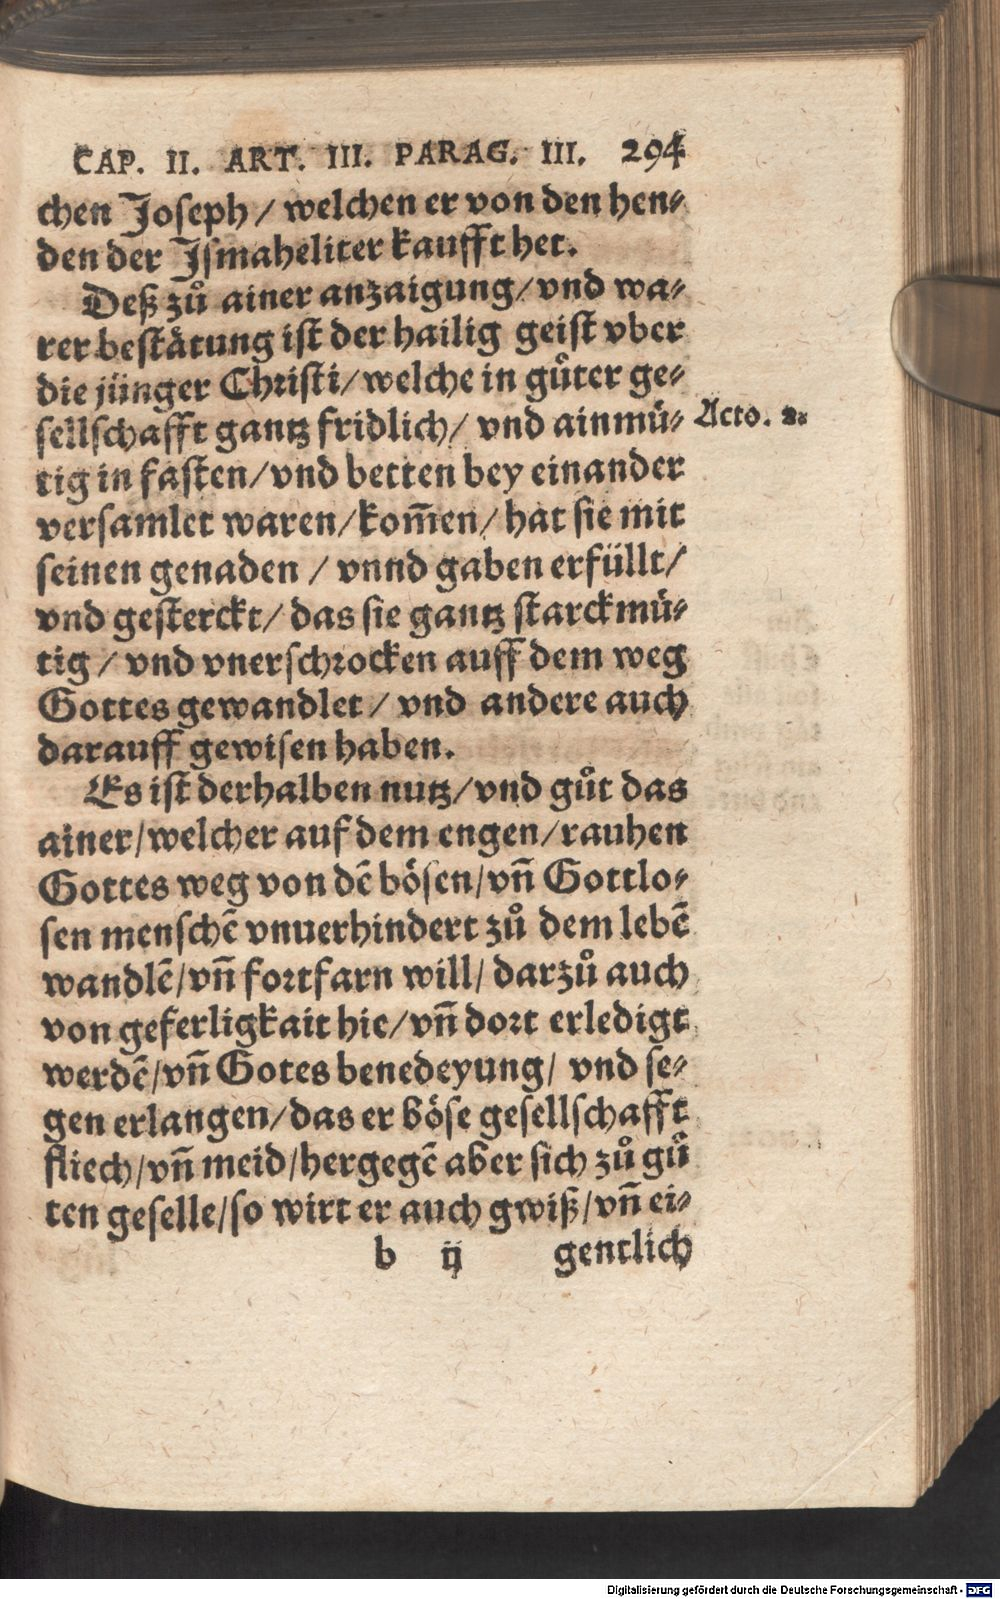 CAP. II. ART. III. PARAG. III. 294
chen Joseph / welchen er von den hen⸗
den der Jsmaheliter kaufft het.
Deß zuͦ ainer anzaigung / vnd wa⸗
rer bestaͤtung ist der hailig geist vber
die jünger Christi / welche in guͦter ge⸗
sellschafft gantz fridlich / vnd ainmuͤ⸗
Acto. 2.
tig in fasten / vnd betten bey einander
versamlet waren / kom̄en / hat sie mit
seinen genaden / vnnd gaben erfüllt /
vnd gesterckt / das sie gantz starckmuͤ⸗
tig / vnd vnerschrocken auff dem weg
Gottes gewandlet / vnd andere auch
darauff gewisen haben.
Es ist derhalben nutz / vnd guͦt das
ainer / welcher auf dem engen / rauhen
Gottes weg von dē boͤsen / vn̄ Gottlo⸗
sen menschē vnuerhindert zuͦ dem lebē
wandlē / vn̄ fortfarn will / darzuͦ auch
von geferligkait hie / vn̄ dort erledigt
werdē / vn̄ Gotes benedeyung / vnd se⸗
gen erlangen / das er boͤse gesellschafft
fliech / vn̄ meid / hergegē aber sich zuͦ guͦ
ten geselle / so wirt er auch gwiß / vn̄ ei⸗
b ij gentlich
Digitalisierung gefördert durch die Deutsche Forschungsgemeinschaft - DFG